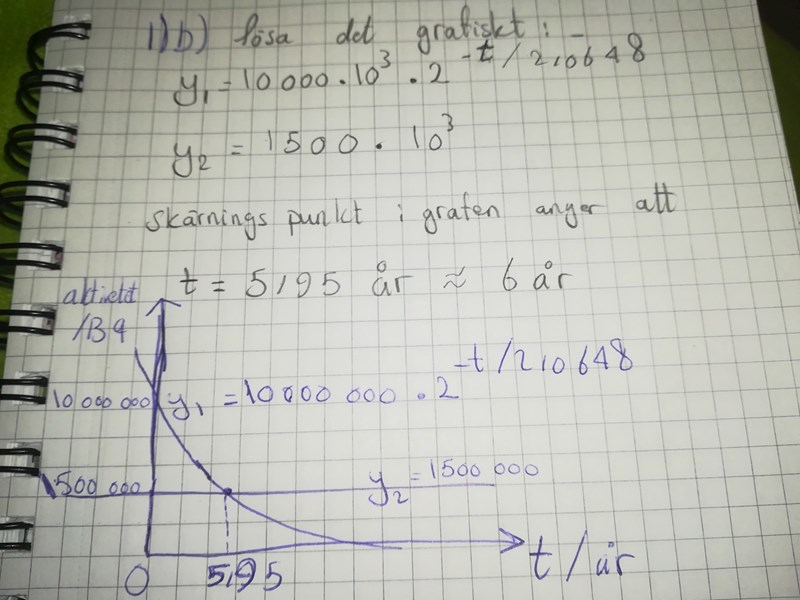 1)b) lösa det grafiskt:
y₁ = 10 000 · 10³ · 2^-t/2,0648
y₂ = 1500 · 10³
skärnings punkt i grafen anger att
t = 5,95 år ≈ 6 år
aktivitet
/Bq
10 000 000
y₁ = 10 000 000 · 2^-t/2,0648
1500 000
y₂ = 1500 000
0
5,95
t/år